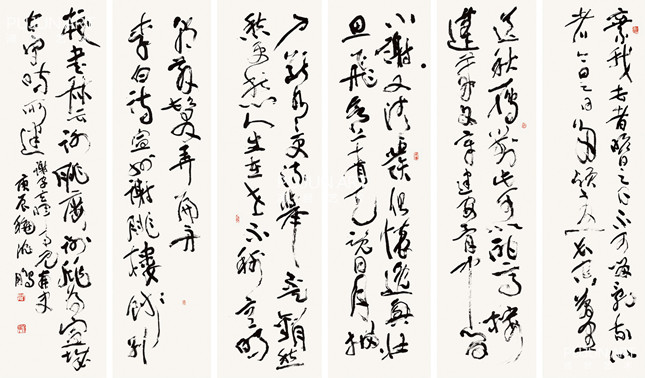 棄我去者昨日之日不可留亂我心
者今日之日多煩憂長風萬里
送秋雁對此可以酣高樓
蓬萊文章建安骨中間
小謝又清發俱懷逸興壯
思飛欲上青天覽日月抽
刀斷水水更流舉杯銷愁
愁更愁人生在世不稱意明
朝散髮弄扁舟
李白詩宣州謝朓樓餞別
校書叔雲謝朓樓謝朓為宣城
太守時所建
庚辰 沈鵬